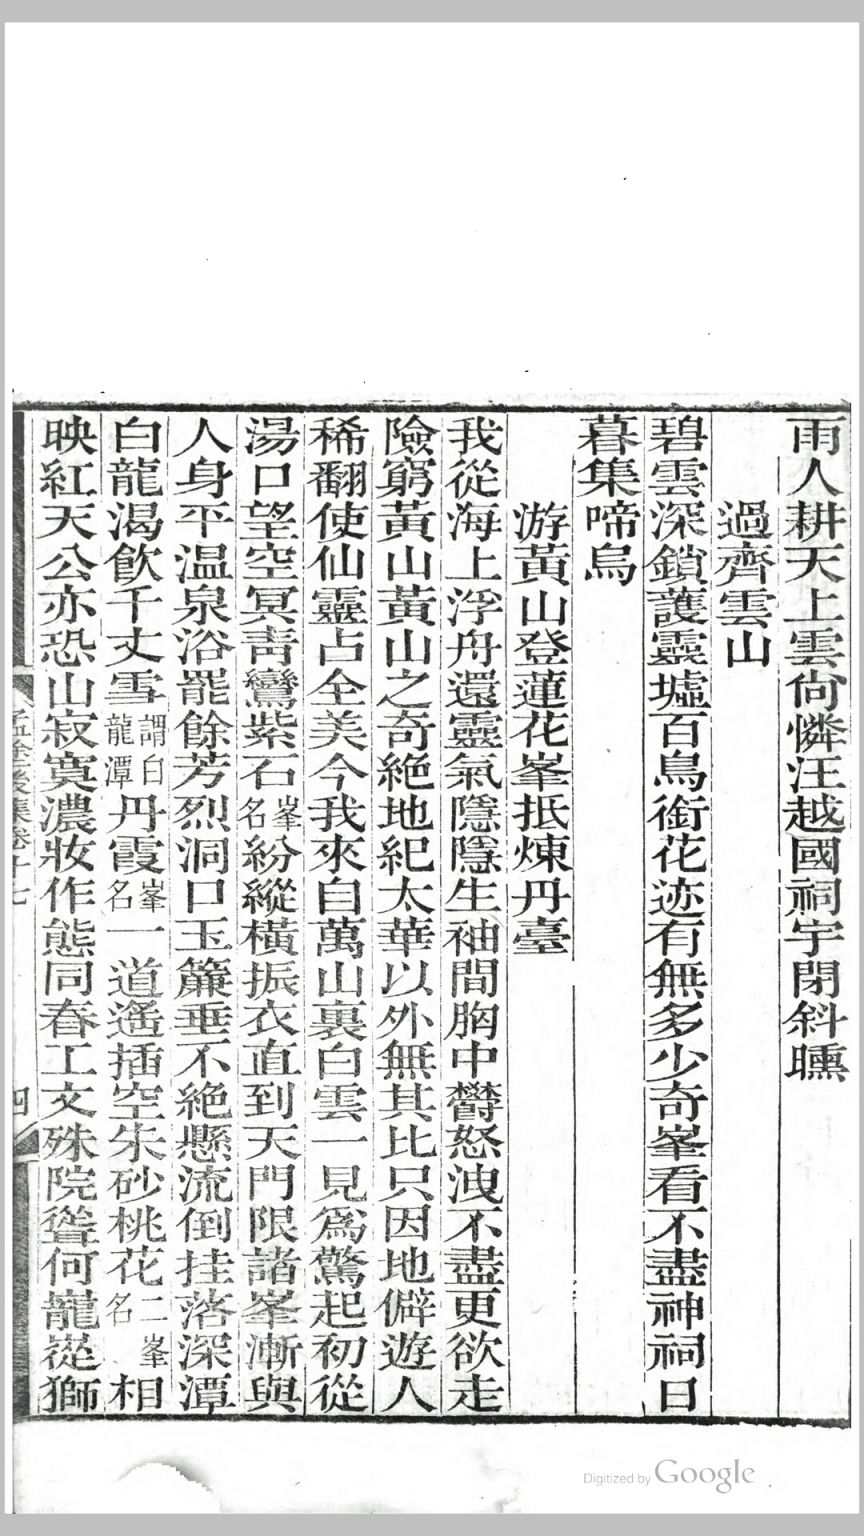 雨人耕天上雲尙憐汪越國祠宇閉斜曛
過齊雲山
碧雲深鎖護靈墟百鳥銜花迹有無多少奇峯看不盡神祠日
暮集啼烏
游黃山登蓮花峯抵煉丹臺
我從海上浮舟還靈氣隱隱生袖間胸中鬱怒洩不盡更欲走
險窮黃山黃山之奇絕地紀太華以外無其比只因地僻遊人
稀翻使仙靈占全美今我來自萬山裏白雲一見爲驚起初從
湯口望空冥靑鸞紫石峯名紛縱橫振衣直到天門限諸峯漸與
人身平温泉浴罷餘芳烈洞口玉簾垂不絕懸流倒挂落深潭
白龍渴飮千丈雪謂白龍潭丹霞峯名一道遙插空朱砂桃花二峯名相
映紅天公亦恐山寂寞濃妝作態同春工文殊院聳何巃嵸獅
孟塗後集卷十七
四
Digitized by Google